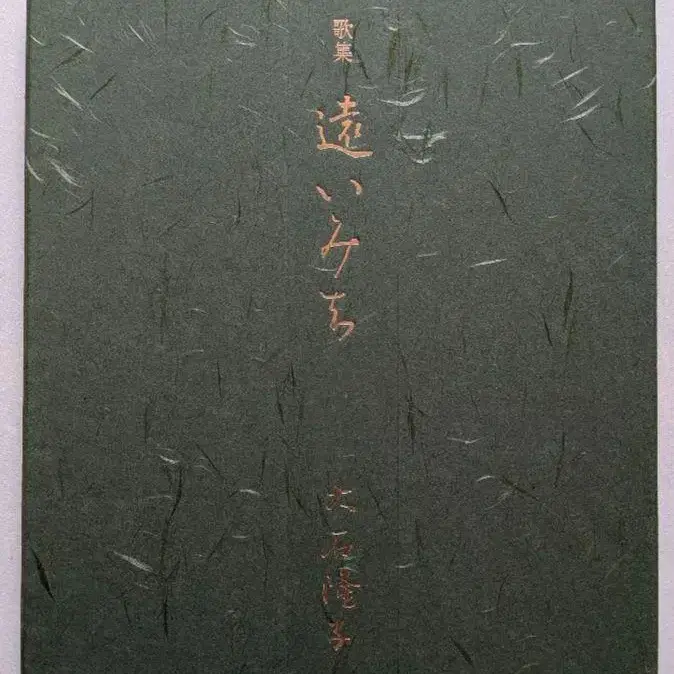 歌集
遠いみち
大石隆子